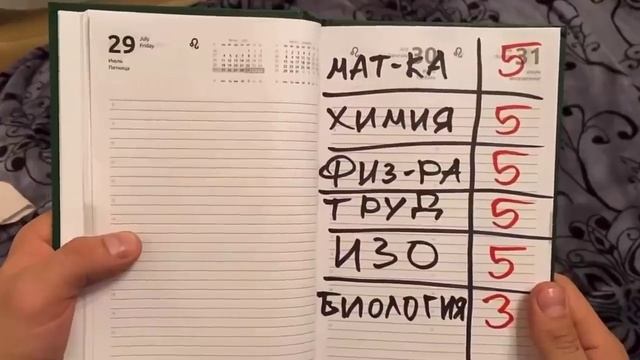 29
July
Friday
Июль
Пятница
30
31
МАТ-КА 5
ХИМИЯ 5
ФИЗ-РА 5
ТРУД 5
ИЗО 5
БИОЛОГИЯ 3